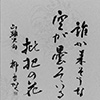 誰か来そうな
空が曇つている
枇杷の花
山頭火